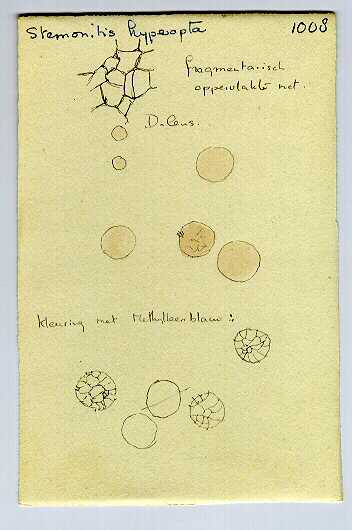 Stemonitis hyperopta 1008
fragmentarisch
oppervlakte net.
D. Lens.
Kleuring met Methyleenblauw: